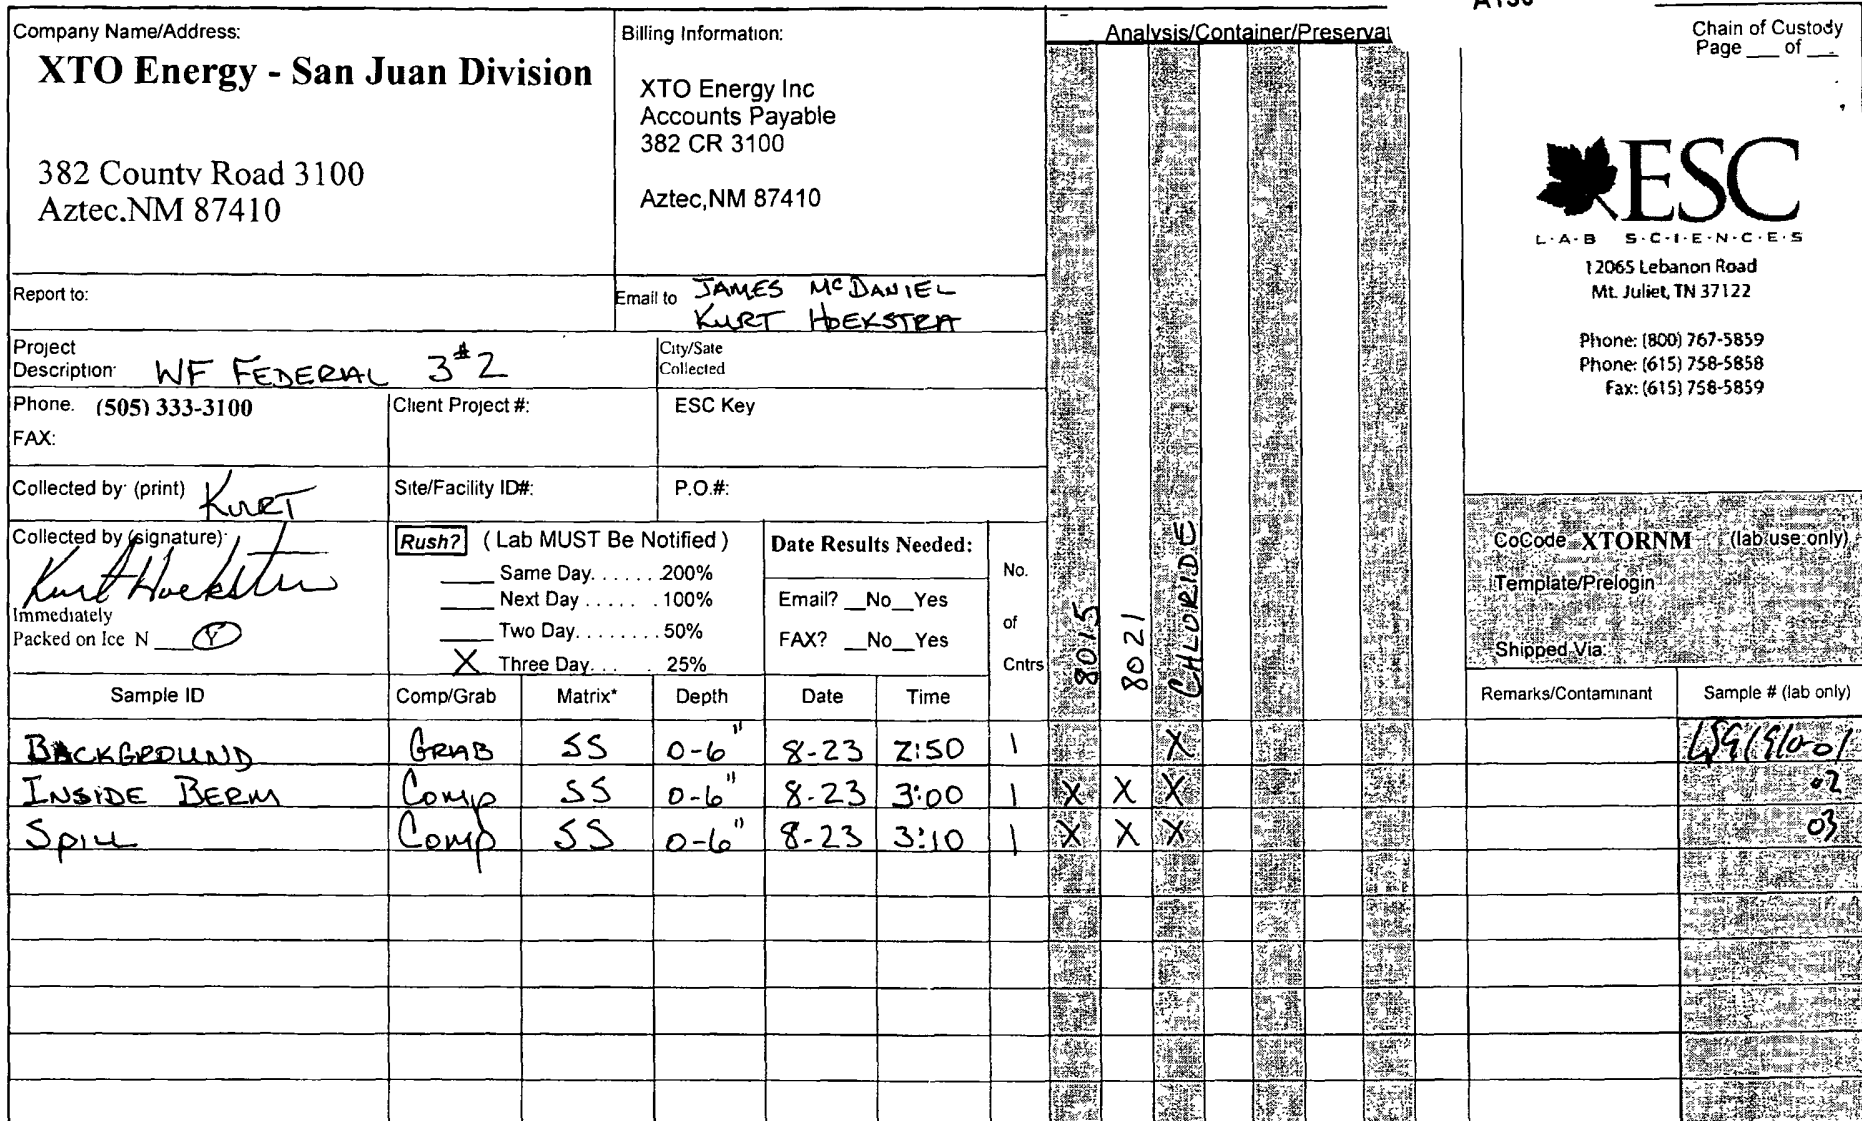 Company Name/Address:
XTO Energy - San Juan Division
382 County Road 3100
Aztec.NM 87410
Billing Information:
XTO Energy Inc
Accounts Payable
382 CR 3100
Aztec,NM 87410
Analysis/Container/Preservat
Chain of Custody
Page ___ of ___
ESC
L·A·B S·C·I·E·N·C·E·S
12065 Lebanon Road
Mt. Juliet, TN 37122
Phone: (800) 767-5859
Phone: (615) 758-5858
Fax: (615) 758-5859
Report to:
Email to JAMES McDANIEL
KURT HOEKSTRA
Project
Description WF FEDERAL 3#2
City/Sate
Collected
Phone. (505) 333-3100
FAX:
Client Project #:
ESC Key
Collected by (print) KURT
Site/Facility ID#:
P.O.#:
Collected by (signature)
Kurt Hoekstra
Immediately
Packed on Ice N ___ Y
Rush? ( Lab MUST Be Notified )
___ Same Day. . . . . . .200%
___ Next Day . . . . . . .100%
___ Two Day. . . . . . . . 50%
X Three Day. . . . 25%
Date Results Needed:
Email? __No__Yes
FAX? __No__Yes
No.
of
Cntrs
8015
8021
CHLORIDE
CoCode XTORNM (lab use only)
Template/Prelogin
Shipped Via:
Sample ID Comp/Grab Matrix* Depth Date Time Remarks/Contaminant Sample # (lab only)
BACKGROUND GRAB SS 0-6" 8-23 2:50 1 X
INSIDE BERM Comp SS 0-6" 8-23 3:00 1 X X X 02
Spill Comp SS 0-6" 8-23 3:10 1 X X X 03